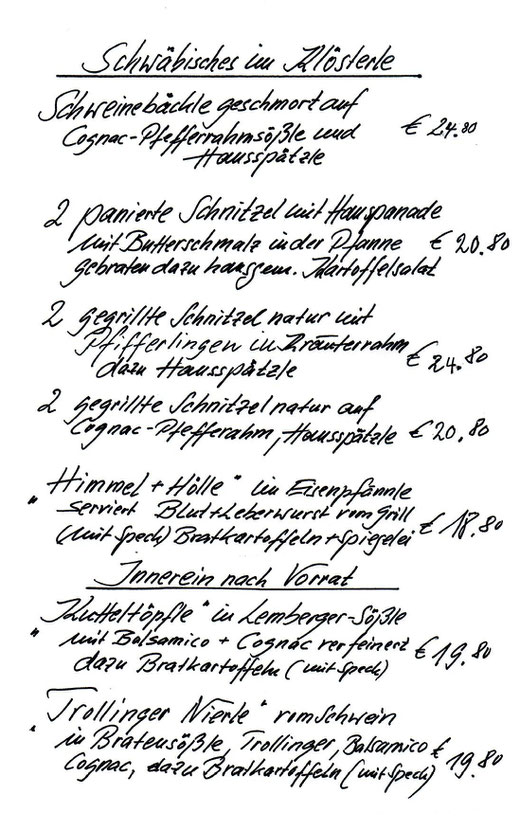 Schwäbisches im Klösterle
Schweinebäckle geschmort auf
Cognac-Pfefferrahmsößle und € 24.80
Hausspätzle
2 panierte Schnitzel mit Hauspanade
mit Butterschmalz in der Pfanne € 20.80
gebraten dazu hausgem. Kartoffelsalat
2 gegrillte Schnitzel natur mit
Pfifferlingen in Kräuterrahm € 24.80
dazu Hausspätzle
2 gegrillte Schnitzel natur auf
Cognac-Pfefferahm, Hausspätzle € 20.80
„Himmel + Hölle" im Eisenpfännle
serviert Blut+Leberwurst vom Grill € 18.80
(mit Speck) Bratkartoffeln + Spiegelei
Innerein nach Vorrat
„Kutteltöpfle" in Lemberger-Sößle
mit Balsamico + Cognac verfeinert € 19.80
dazu Bratkartoffeln (mit Speck)
„Trollinger Nierle" vom Schwein
in Bratensößle, Trollinger, Balsamico €
Cognac, dazu Bratkartoffeln (mit Speck) 19.80